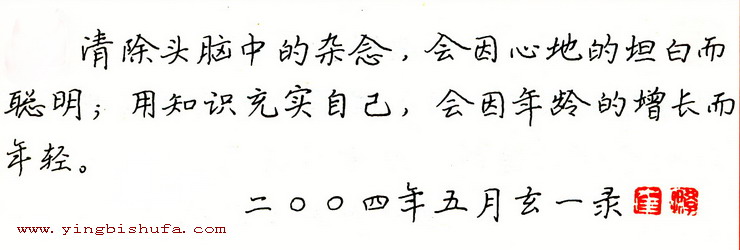 清除头脑中的杂念，会因心地的坦白而
聪明；用知识充实自己，会因年龄的增长而
年轻。
二〇〇四年五月玄一录
www.yingbishufa.com